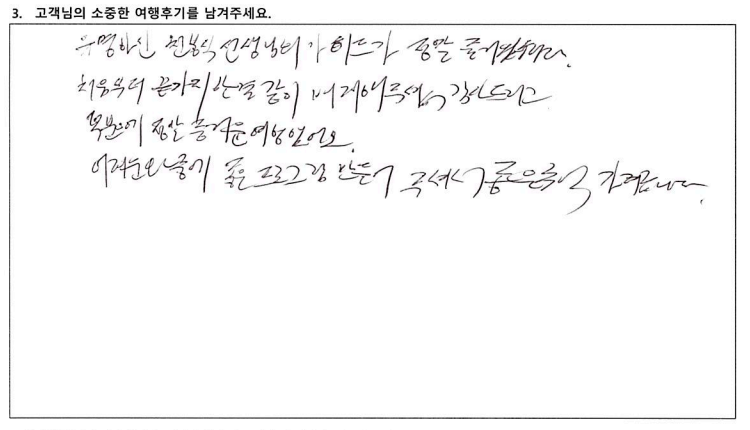 3. 고객님의 소중한 여행후기를 남겨주세요.
유명하신 선생님의 가이드가 정말 즐거웠습니다.
처음부터 끝까지 한결같이 배려해주셔서 감사드리고
덕분에 정말 즐거운 여행이었어요.
어려운 와중에 좋은 프로그램 만들어 주셔서 좋은추억 가져갑니다.